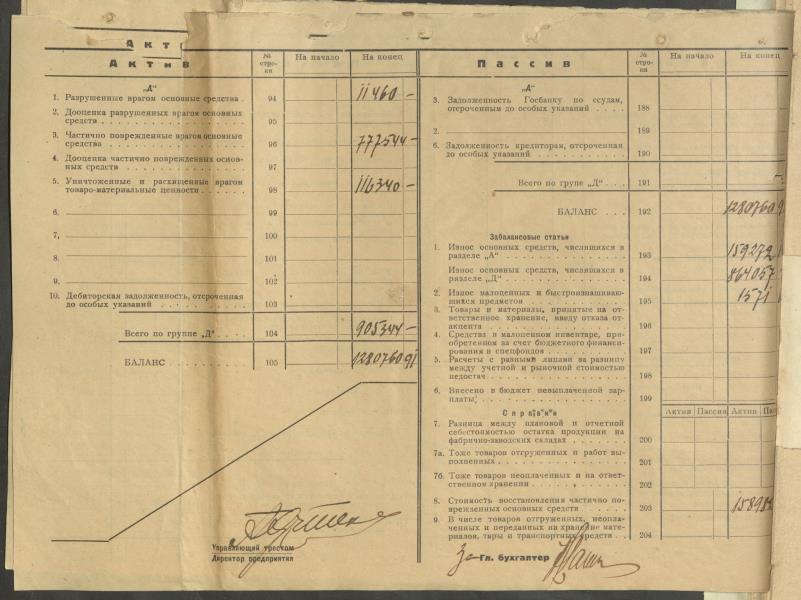 Акти
Актив
№ стро- ки
На начало
На конец
„Д“
1. Разрушенные врагом основные средства . 94 11460 —
2. Дооценка разрушенных врагом основных
средств . . . 95
3. Частично поврежденные врагом основные
средства . . . 96 777544 —
4. Дооценка частично поврежденных основ-
ных средств . . . 97
5. Уничтоженные и расхищенные врагом
товаро-материальные ценности . . . 98 116340 —
6. 99
7. 100
8. 101
9. 102
10. Дебиторская задолженность, отсроченная
до особых указаний . . . 103
Всего по группе „Д“ . . 104 905344 —
БАЛАНС . . . 105 1280760 91
Управляющий трестом
Директор предприятия
Пассив
№ стро- ки
На начало
На конец
„Д“
3. Задолженность Госбанку по ссудам,
отсроченным до особых указаний . . . . 188
2. 189
6. Задолженность кредиторам, отсроченная
до особых указаний . . . 190
Всего по групе „Д“ . . . 191
БАЛАНС . . . 192 1280760 9
Забалансовые статьи
1. Износ основных средств, числящихся в
разделе „А“ . . . 193 159272
Износ основных средств, числящихся в
разделе „Д“ . . . 194 864057
2. Износ малоценных и быстроизнашиваю-
щихся предметов . . . 195 1571
3. Товары и материалы, принятые на от-
ветственное хранение, ввиду отказа от
акцепта . . . 196
4. Средства в малоценном инвентаре, при-
обретенном за счет бюджетного финанси-
рования и спецфондов . . . 197
5. Расчеты с разными лицами за разницу
между учетной и рыночной стоимостью
недостач . . . 198
6. Внесено в бюджет невыплаченной зар-
платы . . . 199
Справки
Актив Пассив Актив Пасс
7. Разница между плановой и отчетной
себестоимостью остатка продукции на
фабрично-заводских складах . . . 200
7а. Тоже товаров отгруженных и работ вы-
полненных . . . 201
7б. Тоже товаров неоплаченных и на ответ-
ственном хранении . . . 202
8. Стоимость восстановления частично по-
врежденных основных средств . . . 203
9. В числе товаров отгруженных, неопла-
ченных и переданных на хранение мате-
риалов, тары и транспортных средств . . 204
За Гл. бухгалтер